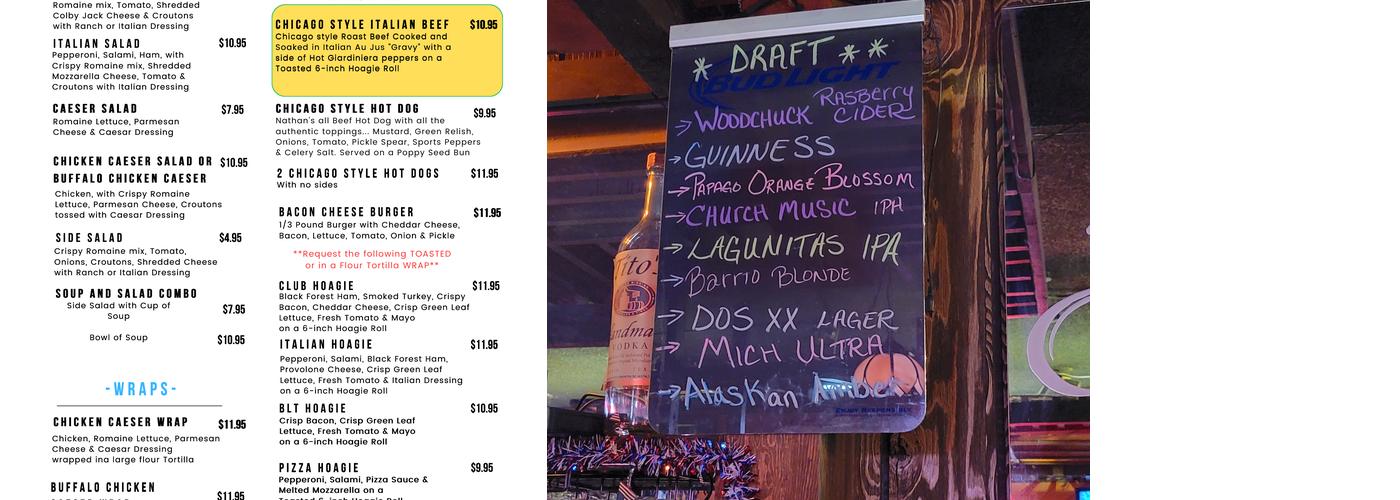 Romaine mix, Tomato, Shredded
Colby Jack Cheese & Croutons
with Ranch or Italian Dressing
ITALIAN SALAD $10.95
Pepperoni, Salami, Ham, with
Crispy Romaine mix, Shredded
Mozzarella Cheese, Tomato &
Croutons with Italian Dressing
CAESER SALAD $7.95
Romaine Lettuce, Parmesan
Cheese & Caesar Dressing
CHICKEN CAESER SALAD OR $10.95
BUFFALO CHICKEN CAESER
Chicken, with Crispy Romaine
Lettuce, Parmesan Cheese, Croutons
tossed with Caesar Dressing
SIDE SALAD $4.95
Crispy Romaine mix, Tomato,
Onions, Croutons, Shredded Cheese
with Ranch or Italian Dressing
SOUP AND SALAD COMBO
Side Salad with Cup of
Soup $7.95
Bowl of Soup $10.95
-WRAPS-
CHICKEN CAESER WRAP $11.95
Chicken, Romaine Lettuce, Parmesan
Cheese & Caesar Dressing
wrapped ina large flour Tortilla
BUFFALO CHICKEN
$11.95
CHICAGO STYLE ITALIAN BEEF $10.95
Chicago style Roast Beef Cooked and
Soaked in Italian Au Jus "Gravy" with a
side of Hot Giardiniera peppers on a
Toasted 6-inch Hoagie Roll
CHICAGO STYLE HOT DOG $9.95
Nathan's all Beef Hot Dog with all the
authentic toppings... Mustard, Green Relish,
Onions, Tomato, Pickle Spear, Sports Peppers
& Celery Salt. Served on a Poppy Seed Bun
2 CHICAGO STYLE HOT DOGS $11.95
With no sides
BACON CHEESE BURGER $11.95
1/3 Pound Burger with Cheddar Cheese,
Bacon, Lettuce, Tomato, Onion & Pickle
**Request the following TOASTED
or in a Flour Tortilla WRAP**
CLUB HOAGIE $11.95
Black Forest Ham, Smoked Turkey, Crispy
Bacon, Cheddar Cheese, Crisp Green Leaf
Lettuce, Fresh Tomato & Mayo
on a 6-inch Hoagie Roll
ITALIAN HOAGIE $11.95
Pepperoni, Salami, Black Forest Ham,
Provolone Cheese, Crisp Green Leaf
Lettuce, Fresh Tomato & Italian Dressing
on a 6-inch Hoagie Roll
BLT HOAGIE $10.95
Crisp Bacon, Crisp Green Leaf
Lettuce, Fresh Tomato & Mayo
on a 6-inch Hoagie Roll
PIZZA HOAGIE $9.95
Pepperoni, Salami, Pizza Sauce &
Melted Mozzarella on a
Toasted 6-inch Hoagie Roll
* DRAFT * *
BUD LIGHT
→ WOODCHUCK RASBerry
CIDER
→ GUINNESS
→ PAPAGO ORANGE BLOSSOM
→ CHURCH MUSIC IPA
→ LAGUNITAS IPA
→ Barrio BLONDE
→ DOS XX LAGER
→ MICH ULTRA
→ Alaskan Amber
ENJOY RESPONSIBLY
Tito's
VODKA